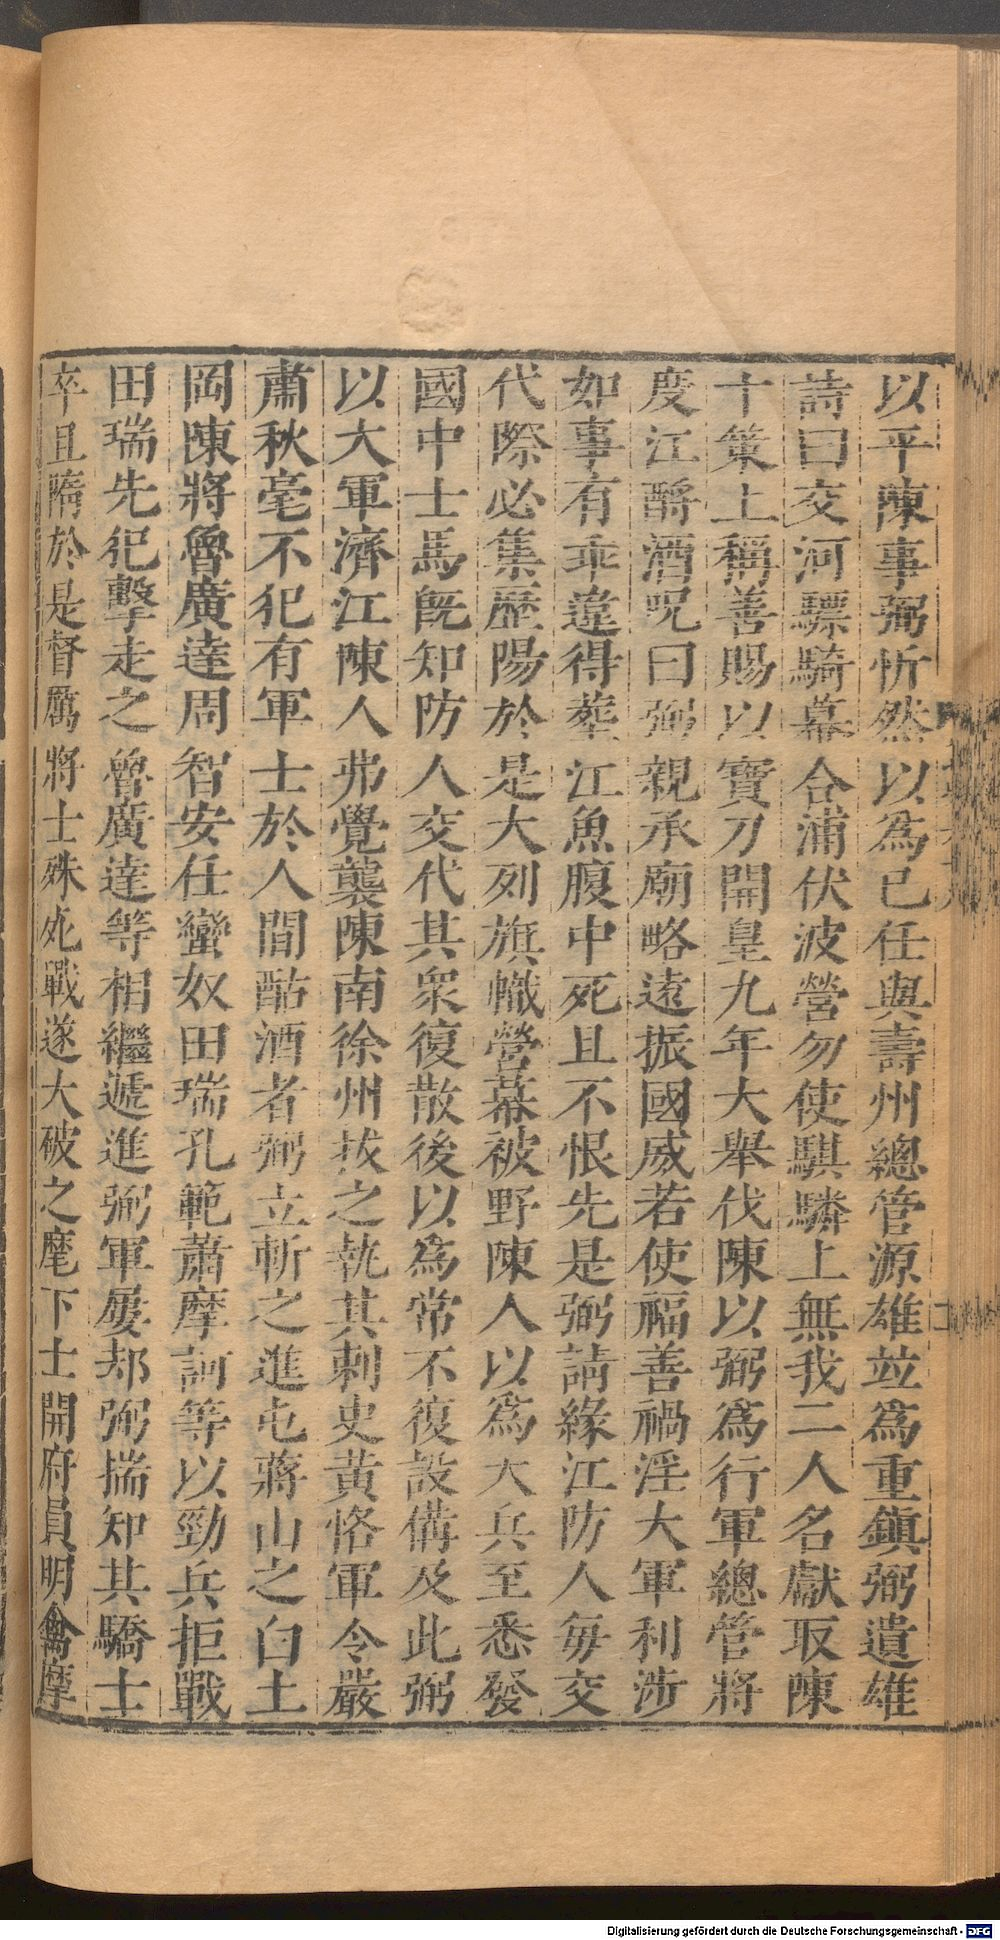 以平陳事弼忻然以爲已任與壽州總管源雄竝爲重鎮弼遺雄
詩曰交河驃騎幕合浦伏波營勿使騏驎上無我二人名獻取陳
十策上稱善賜以寶刀開皇九年大舉伐陳以弼爲行軍總管將
度江酹酒呪曰弼親承廟略遠振國威若使福善禍淫大軍利涉
如事有乖違得葬江魚腹中死且不恨先是弼請緣江防人毎交
代際必集歷陽於是大列旗幟營幕被野陳人以爲大兵至悉發
國中士馬旣知防人交代其衆復散後以爲常不復設備及此弼
以大軍濟江陳人弗覺襲陳南徐州拔之執其刺史黃恪軍令嚴
肅秋毫不犯有軍士於人間酤酒者弼立斬之進屯蔣山之白土
岡陳將魯廣達周智安任蠻奴田瑞孔範蕭摩訶等以勁兵拒戰
田瑞先犯擊走之魯廣達等相繼遞進弼軍屢却弼揣知其驕士
卒且隋於是督厲將士殊死戰遂大破之麾下士開府員明禽摩
Digitalisierung gefördert durch die Deutsche Forschungsgemeinschaft - DFG